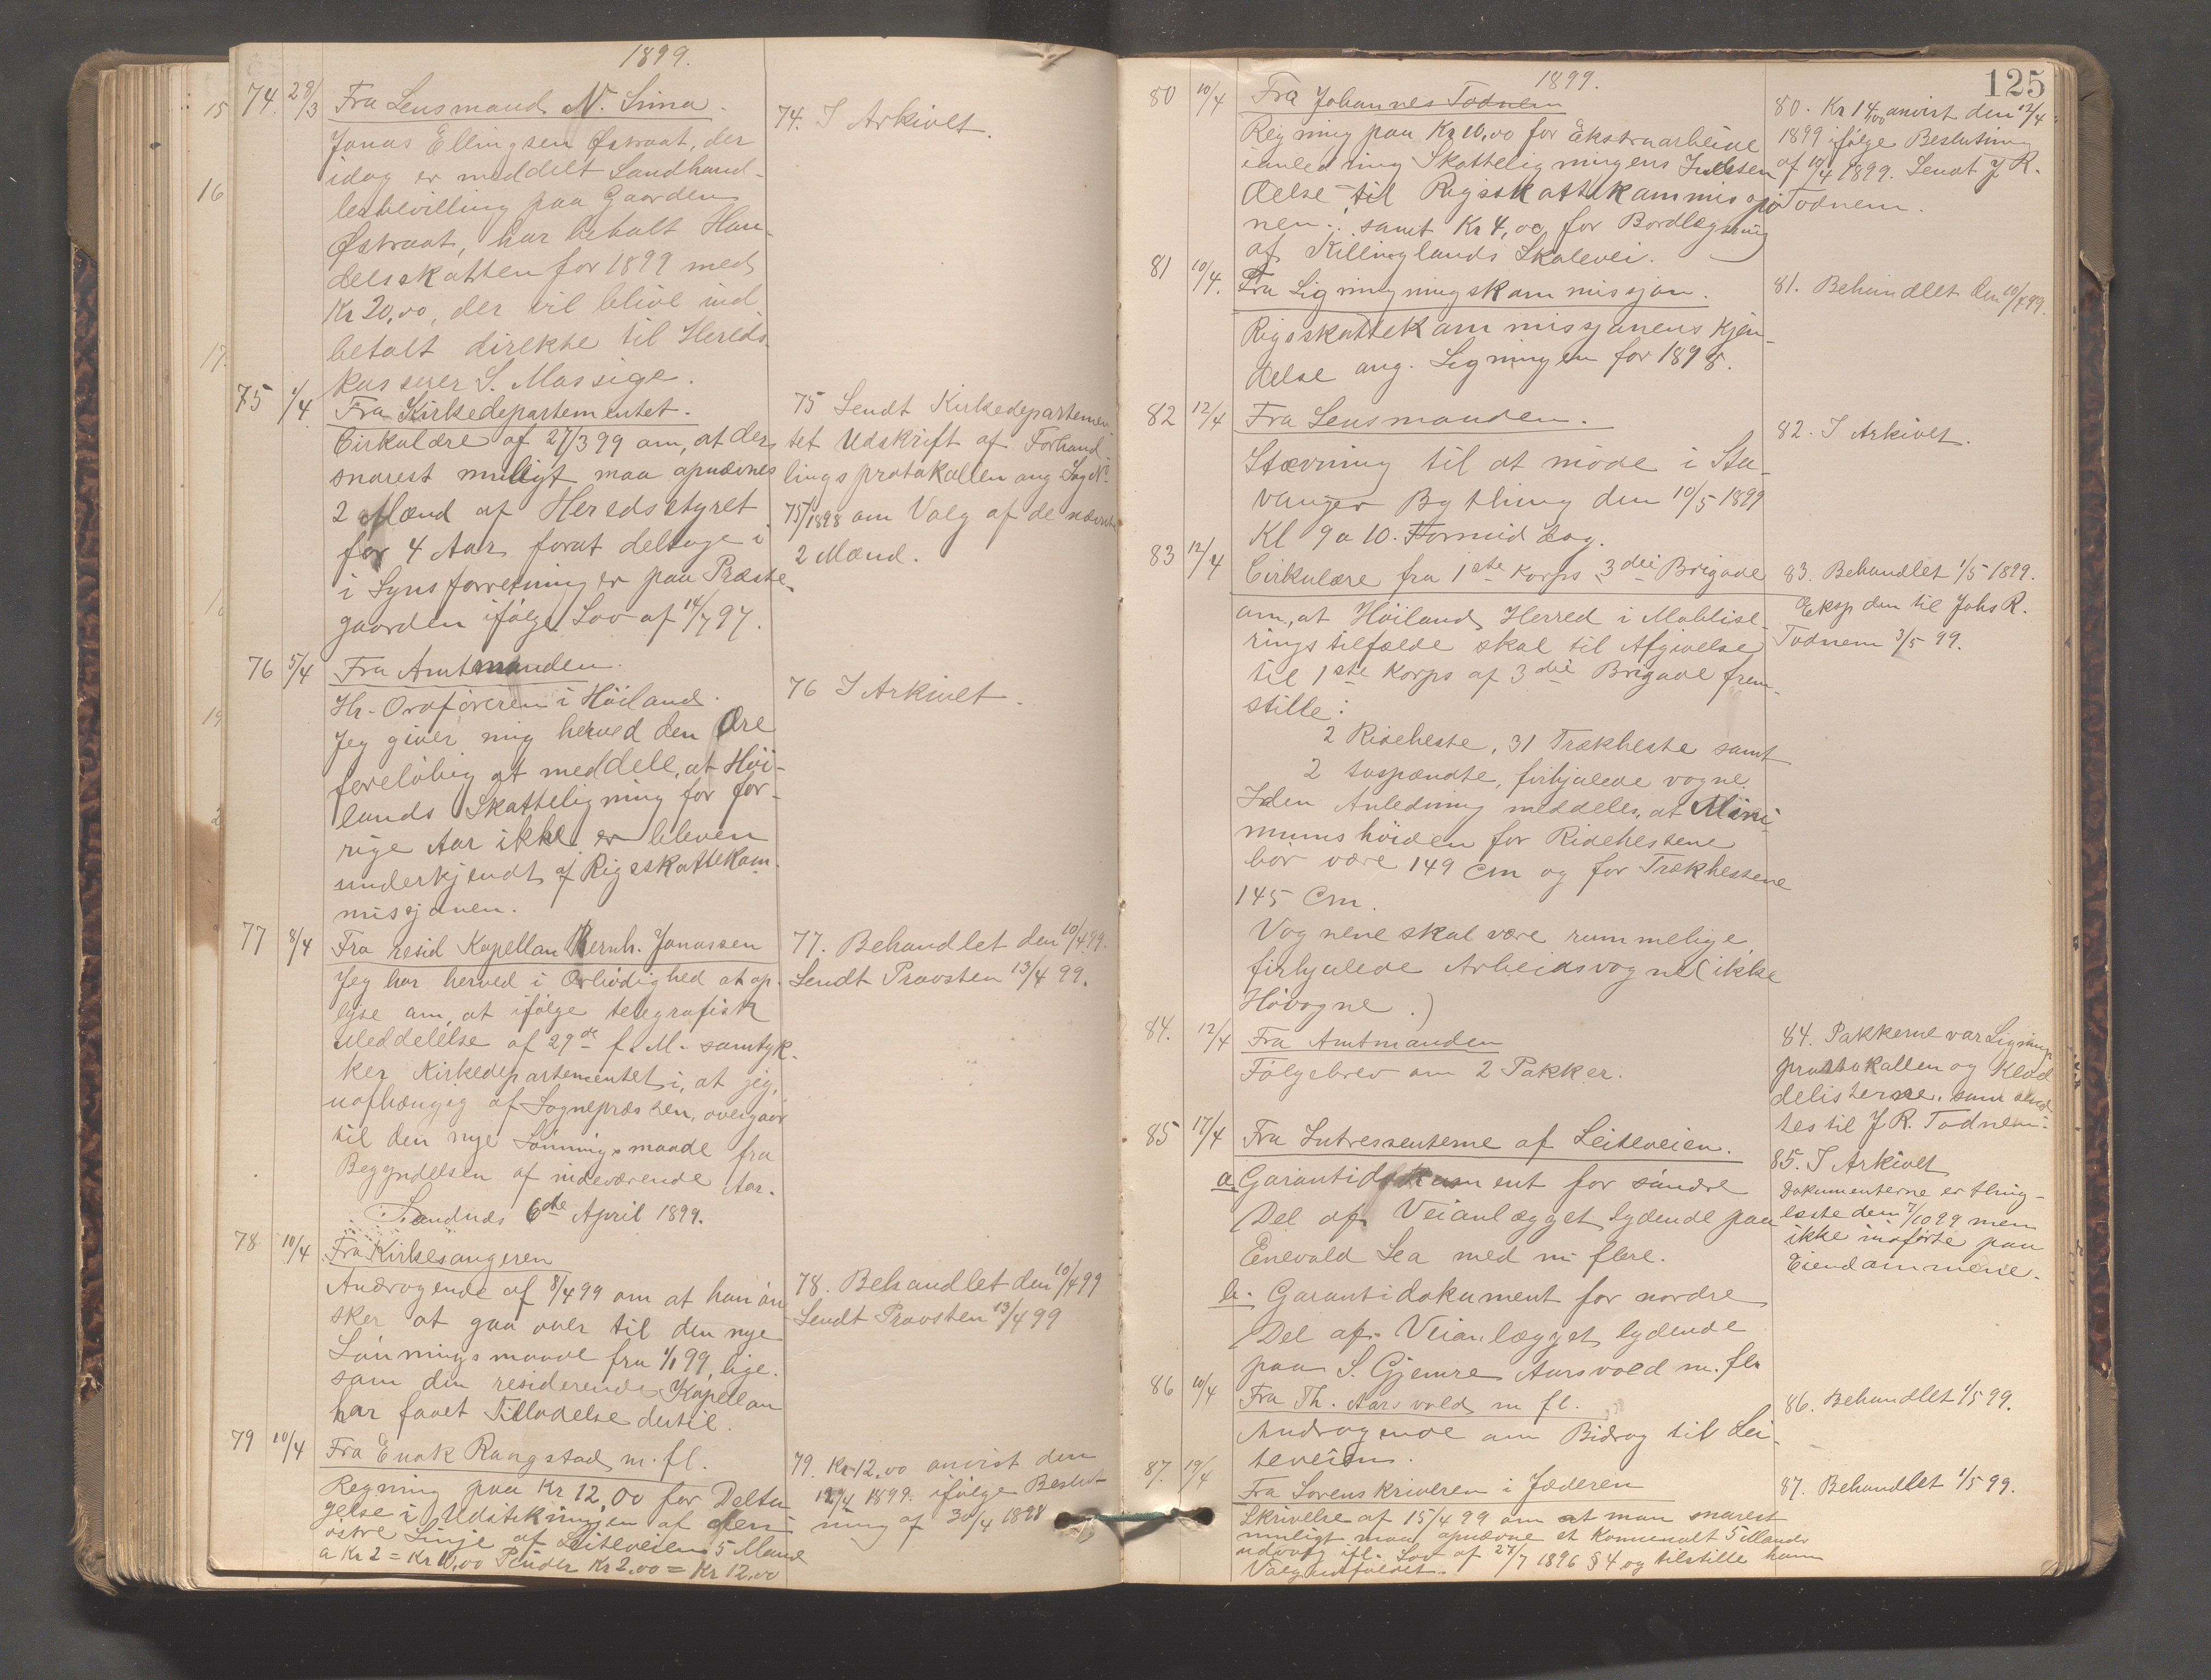 1899.
74. 28/3 Fra Lensmand N. Sima.
Jonas Ellingsen Østraat, der
idag er meddelt Landhand-
lerbevilling paa Gaarden
Østraat, har betalt Han-
delsskatten for 1899 med
Kr 20,00, der vil blive ind
betalt direkte til Hereds-
kasserer S. Massige.
74. I Arkivet.
75 4/4 Fra Kirkedepartementet.
Cirkulære af 27/3 99 om, at der
snarest muligt maa opnævnes
2 Mænd af Heredsstyret
for 4 Aar forat deltage i
i Synsforretninger paa Præste-
gaarden ifølge Lov af 14/7 97.
75 Sendt Kirkedepartemen-
tet Udskrift af Forhand-
lingsprotokollen ang Sag No
75/1898 om Valg af de nævnte
2 Mænd.
76 5/4 Fra Amtmanden.
Hr. Ordføreren i Höiland.
Jeg giver mig herved den Ære
foreløbig at meddele, at Höi-
lands Skatteligning for for-
rige Aar ikke er bleven
underkjendt af Rigsskattekom-
missjonen.
76 I Arkivet.
77 8/4 Fra resid Kapellan Bernh. Jonassen
Jeg har herved i Ærbødighed at op-
lyse om, at ifølge telegrafisk
Meddelelse af 29de f. M. samtyk-
ker Kirkedepartementet i, at jeg,
uafhængig af Sognepræsten, overgaar
til den nye Lønningsmaade fra
Begyndelsen af indeværende Aar.
Sandnæs 6te April 1899.
77. Behandlet den 10/4 99.
Sendt Provsten 13/4 99.
78 10/4 Fra Kirkesangeren
Andragende af 8/4 99 om at han øn
sker at gaa over til den nye
Lønningsmaade fra 1/1 99, lige-
som den residerende Kapellan
har faaet Tilladelse dertil.
78. Behandlet den 10/4 99
Sendt Provsten 13/4 99
79 10/4 Fra Enok Rangstad m. fl.
Regning paa Kr 12,00 for Delta
gelse i Udstikningen af den
østre Linje af Leiteveien 5 Mand
a Kr 2 = Kr 10,00 Pinder Kr 2,00 = Kr 12,00
79. Kr 12,00 anvist den
12/4 1899 ifølge Beslut
ning af 30/4 1898
125
1899.
80 10/4 Fra Johannes Todnem
Regning paa Kr 10,00 for Ekstraarbeide
ianledning Skatteligningens Indsten
delse til Rigsskattekommissjo
nen: samt Kr 4,00 for Bordlægning
af Killinglands Skolevei.
80. Kr 14,00 anvist den 12/4
1899 ifølge Beslutning
af 10/4 1899. Sendt J R.
Todnem.
81 10/4. Fra Ligningningskommissjon.
Rigsskattekommissjonens Kjen-
delse ang. Ligningen for 1898.
81. Behandlet den 10/4 99.
82 12/4 Fra Lensmanden.
Stævning til at møde i Sta-
vanger Bything den 10/5 1899
Kl 9 a 10. Formiddag.
82. I Arkivet.
83 12/4 Cirkulære fra 1ste Korps 3die Brigade
om, at Höiland Herred i Mobilise-
ringstilfælde skal til Afgivelse
til 1ste Korps af 3die Brigade frem-
stille:
2 Rideheste, 31 Trækheste samt
2 tospændte, firhjulede vogne.
I den Anledning meddeles, at Mini-
mumshöiden for Ridehestene
bör være 149 cm og for Trækhestene
145 Cm.
Vognene skal være rummelige
firhjulede Arbeidsvogne (ikke
Høvogne.)
83. Behandlet 1/5 1899.
Eksp den til Johs R.
Todnem 3/5 99.
84. 12/4 Fra Amtmanden
Følgebrev om 2 Pakker.
84. Pakkerne var Lignings
protokollen og Klad
delisterne, som send
tes til J R. Todnem.
85 17/4 Fra Intressenterne af Leiteveien.
a Garantidokument for søndre
Del af Veianlægget lydende paa
Enevald Lea med m flere.
b. Garantidokument for nordre
Del af Veianlægget lydende
paa S. Gjemre Aarsvold m. fl.
85. I Arkivet
Dokumenterne er thing-
læste den 7/10 99 men
ikke indførte paa
Eiendommene.
86 10/4 Fra Th. Aarsvold m fl.
Andragende om Bidrag til Lei-
teveien.
86. Behandlet 1/5 99.
87. 19/4 Fra Sorenskriveren i Jæderen
Skrivelse af 15/4 99 om at man snarest
muligt maa opnævne et Komunalt 5 Mands
udvalg ifl. Lov af 27/7 1896 § 4 og tilstille ham
Valgudfaldet.
87. Behandlet 1/5 99.